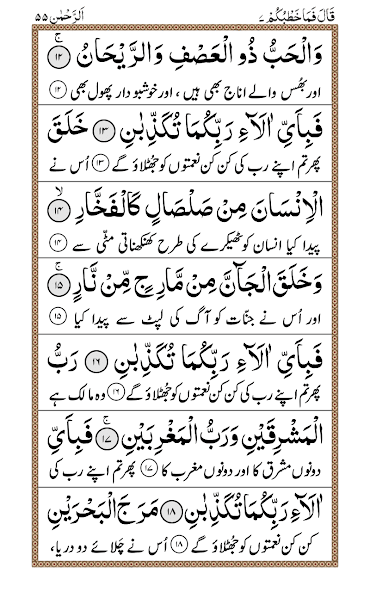 قَالَ فَمَا خَطْبُكُمْ ٢٧ اَلرَّحْمٰن ٥٥
وَالْحَبُّ ذُو الْعَصْفِ وَالرَّيْحَانُ ۚ ﴿١٢﴾
اور بھُس والے اناج بھی ہیں ، اور خوشبو دار پھول بھی ﴿١٢﴾
فَبِاَيِّ اٰلَآءِ رَبِّكُمَا تُكَذِّبٰنِ ﴿١٣﴾ خَلَقَ
پھر تم اپنے رب کی کن کن نعمتوں کو جھٹلاؤ گے ﴿١٣﴾ اُس نے
الْاِنْسَانَ مِنْ صَلْصَالٍ كَالْفَخَّارِ ۙ ﴿١٤﴾
پیدا کیا انسان کو ٹھیکرے کی طرح کھنکھناتی مٹّی سے ﴿١٤﴾
وَخَلَقَ الْجَآنَّ مِنْ مَّارِجٍ مِّنْ نَّارٍ ۚ ﴿١٥﴾
اور اُس نے جنّات کو آگ کی لپٹ سے پیدا کیا ﴿١٥﴾
فَبِاَيِّ اٰلَآءِ رَبِّكُمَا تُكَذِّبٰنِ ﴿١٦﴾ رَبُّ
پھر تم اپنے رب کی کن کن نعمتوں کو جھٹلاؤ گے ﴿١٦﴾ وہ مالک ہے
الْمَشْرِقَيْنِ وَرَبُّ الْمَغْرِبَيْنِ ۚ ﴿١٧﴾ فَبِاَيِّ
دونوں مشرق کا اور دونوں مغرب کا ﴿١٧﴾ پھر تم اپنے رب کی
اٰلَآءِ رَبِّكُمَا تُكَذِّبٰنِ ﴿١٨﴾ مَرَجَ الْبَحْرَيْنِ
کن کن نعمتوں کو جھٹلاؤ گے ﴿١٨﴾ اُس نے چلائے دو دریا ،